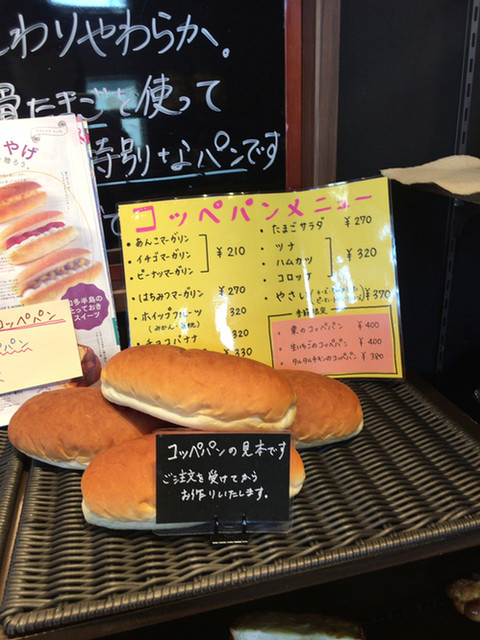 わりやわらか。
たまごを使って
特別なパンです
やげ
コッペパンメニュー
・あんこマーガリン
・イチゴマーガリン
・ピーナツマーガリン
¥210
・はちみつマーガリン ¥270
・ホイップフルーツ 320
・チョコバナナ 320
330
・たまごサラダ ¥270
・ツナ
・ハムカツ
・コロッケ
¥320
・やさい ¥370
季節限定
・栗のコッペパン ¥400
・生いちごのコッペパン ¥400
・タルタルチキンのコッペパン ¥380
多半島の
とっておき
スイーツ
コッペパン
パン
コッペパンの見本です
ご注文を受けてから
お作りいたします。